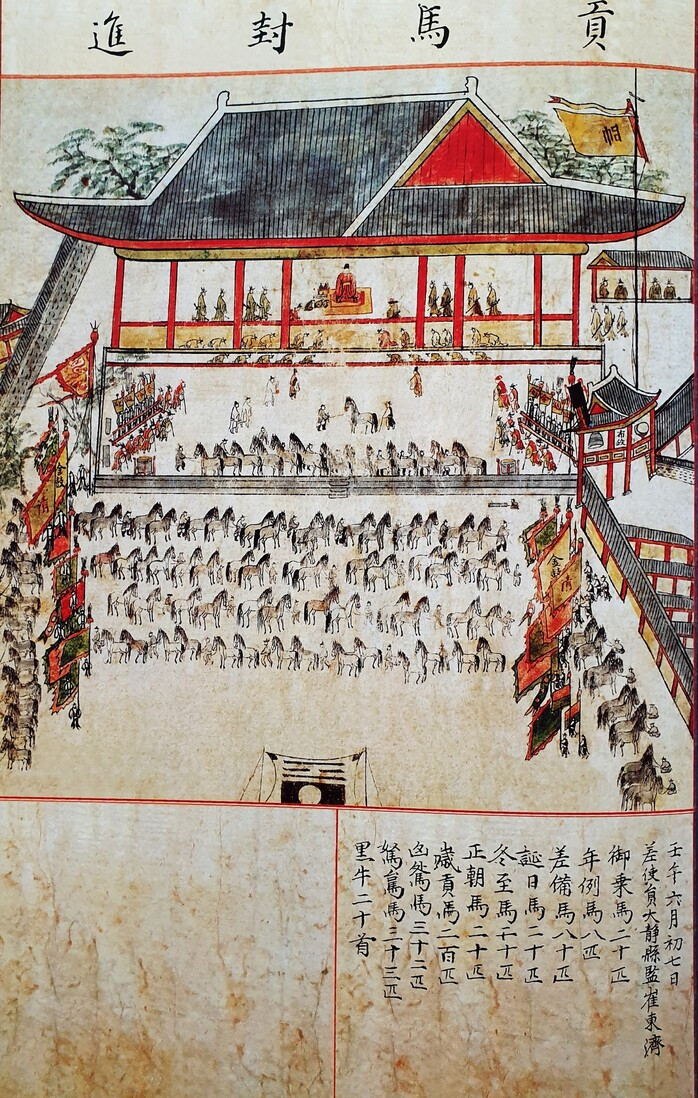 貢馬封進
帥
布政
金鼓
清
金鼓
清
壬午六月初七日
差使員大靜縣監崔東濟
御乘馬二十匹
年例馬八匹
差備馬八十匹
誕日馬二十匹
冬至馬二十匹
正朝馬二十匹
歲貢馬二百匹
凶馬三十二匹
駑駘馬三十三匹
黑牛二十首